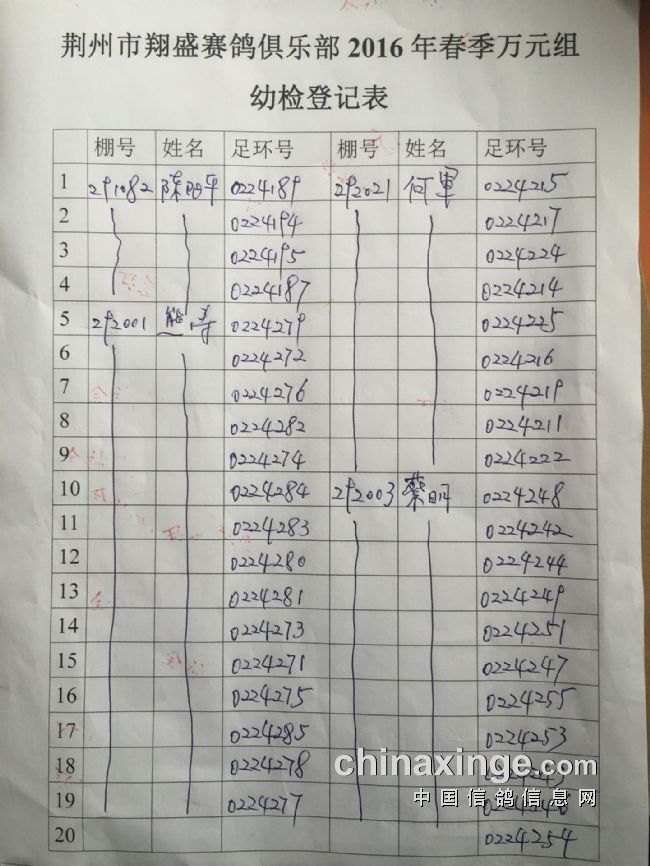 荆州市翔盛赛鸽俱乐部2016年春季万元组
幼检登记表
棚号 姓名 足环号 棚号 姓名 足环号
1 291082 陈明平 0224189 292021 何軍 0224215
2 0224194 0224217
3 0224195 0224224
4 0224187 0224214
5 292001 熊寿 0224279 0224225
6 0224272 0224216
7 0224276 0224219
8 0224282 0224211
9 0224274 0224222
10 0224284 292003 蔡明 0224248
11 0224283 0224242
12 0224280 0224244
13 0224281 0224249
14 0224273 0224251
15 0224271 0224247
16 0224275 0224255
17 0224285 0224253
18 0224278
19 0224277
20 0224254
chinaxinge.com
中国信鸽信息网